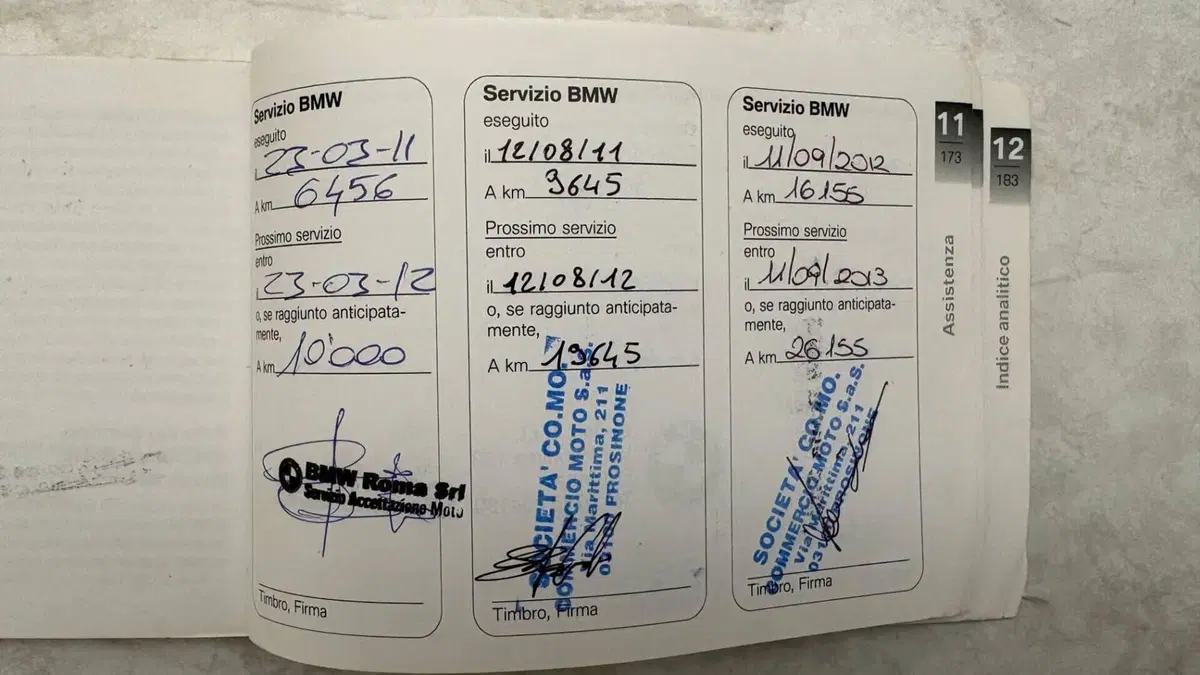 Servizio BMW
eseguito
il 23-03-11
A km 6456
Prossimo servizio
entro
il 23-03-12
o, se raggiunto anticipata-
mente,
A km 10'000
BMW Roma Srl
Servizio Accettazione Moto
Timbro, Firma
Servizio BMW
eseguito
il 12/08/11
A km 9645
Prossimo servizio
entro
il 12/08/12
o, se raggiunto anticipata-
mente,
A km 19645
SOCIETA' CO.MO.
COMMERCIO MOTO S.a.s.
Via Marittima, 211
FROSINONE
Timbro, Firma
Servizio BMW
eseguito
il 11/09/2012
A km 16155
Prossimo servizio
entro
il 11/09/2013
o, se raggiunto anticipata-
mente,
A km 26155
SOCIETA' CO.MO.
COMMERCIO MOTO S.a.s.
Via Marittima, 211
FROSINONE
Timbro, Firma
11
173
Assistenza
12
183
Indice analitico